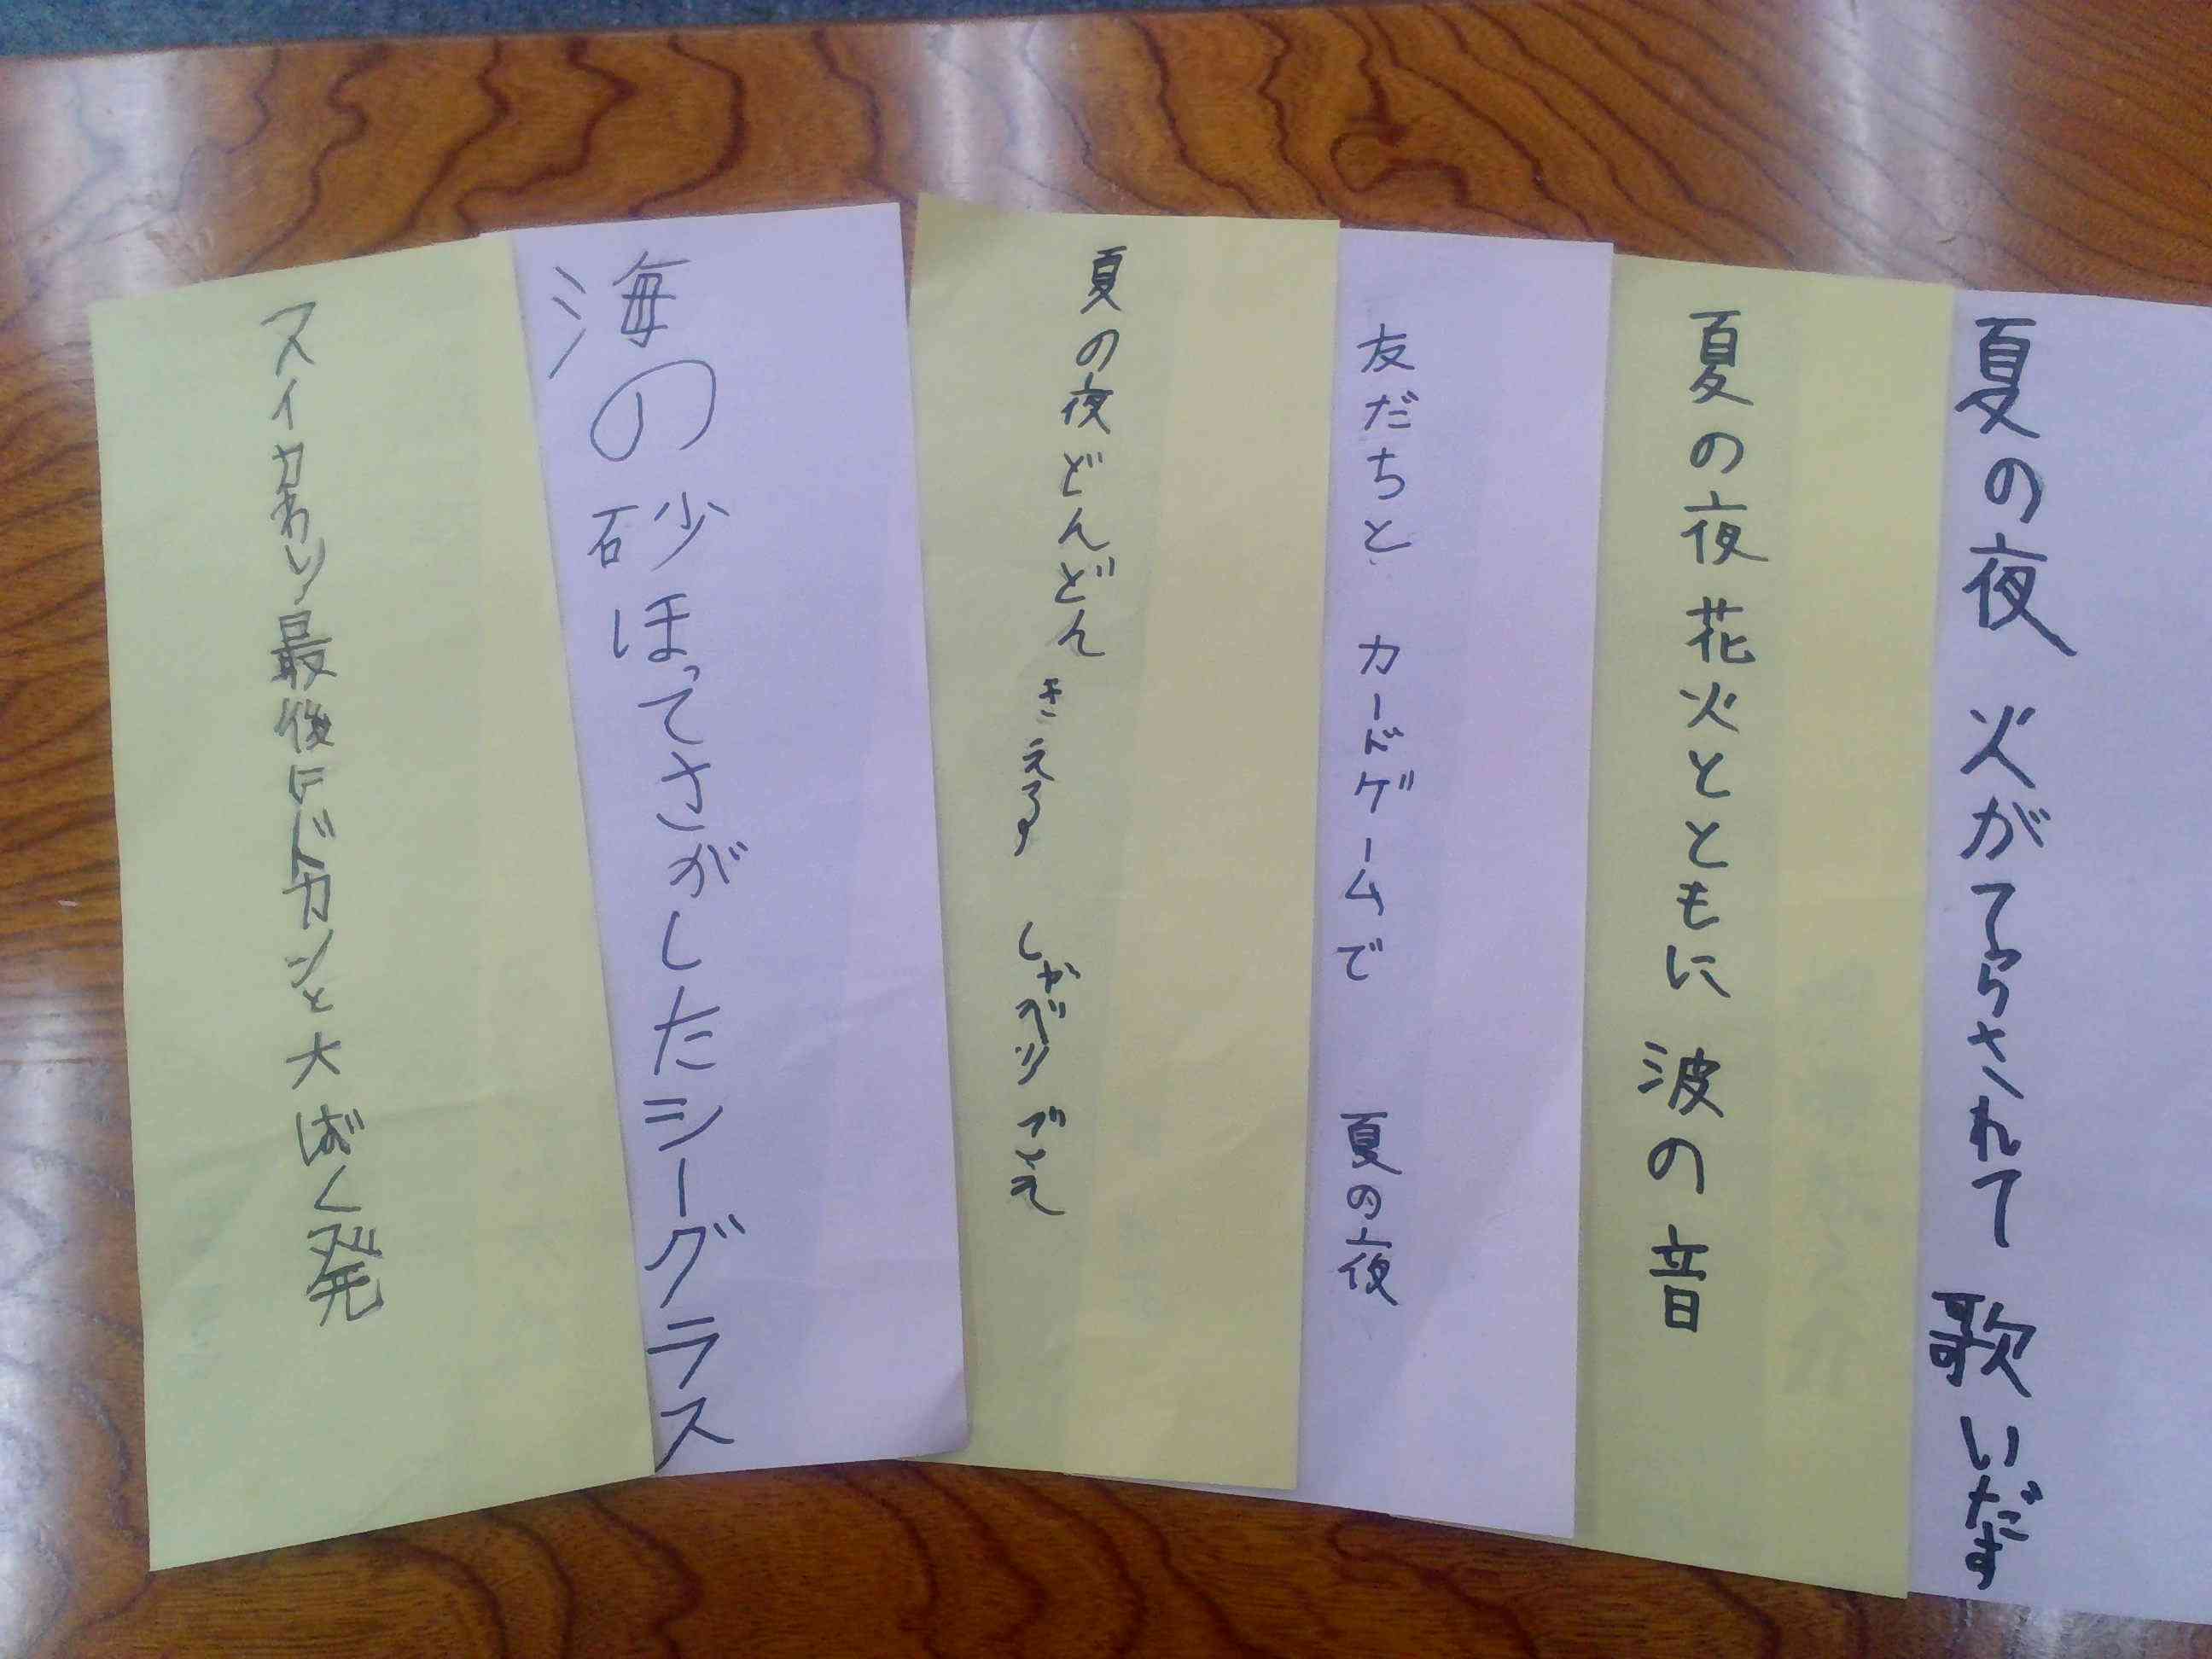 夏の夜 火がてらされて 歌いだす
夏の夜 花火とともに 波の音
友だちと カードゲームで 夏の夜
夏の夜どんどん きえる しゃべりごえ
海の砂ほってさがしたシーグラス
スイカわり最後にドカンと大ばく発